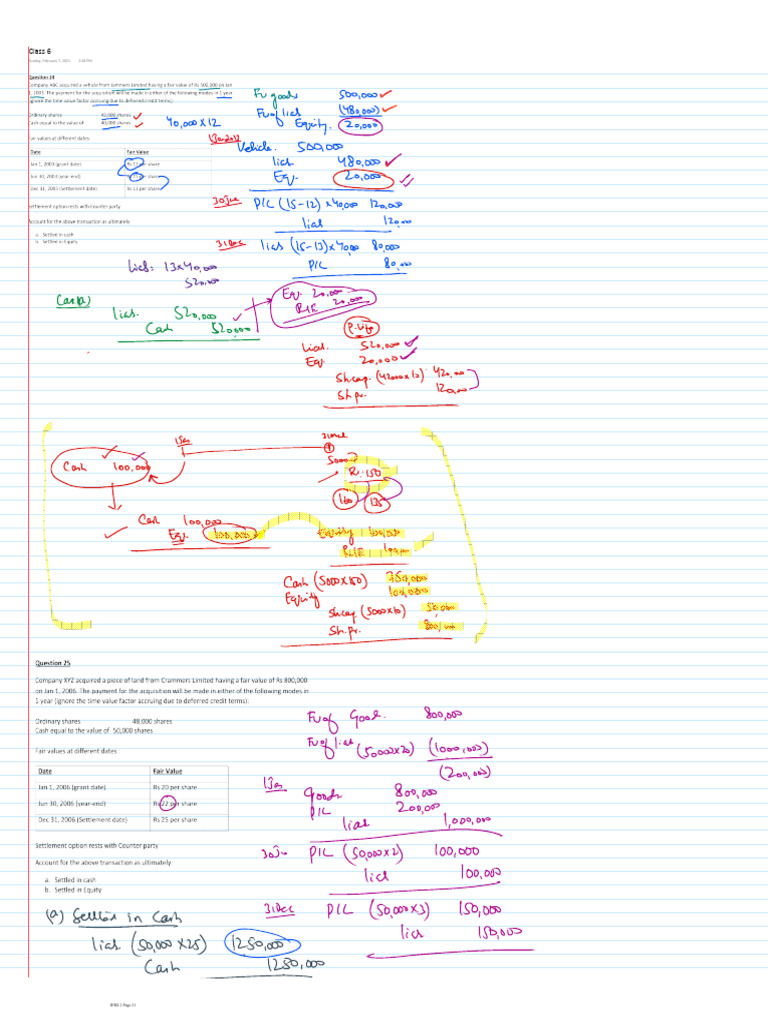 Class 6
Sunday, February 7, 2021
Question 24
Company ABC acquired a vehicle from Jammers Limited having a fair value of Rs 500,000 on Jan
1, 2003. The payment for the acquisition will be made in either of the following modes in 1 year
(ignore the time value factor accruing due to deferred credit terms):
Ordinary shares 42,000 shares
Cash equal to the value of 40,000 shares
40,000 x 12
Fair values at different dates:
Date Fair Value
Jan 1, 2003 (grant date) Rs 12 per share
Jun 30, 2003 (year end) per share
Dec 31, 2003 (Settlement date) Rs 13 per share
Settlement option rests with Counter party
Account for the above transaction as ultimately:
a. Settled in cash
b. Settled in Equity
Fv goods 500,000
Fv of liab (480,000)
Equity. 20,000
Vehicle. 500,000
liab 480,000
Eq. 20,000
30 Ju P/L (15-12) x 40,000 120,000
liab 120,000
31 Dec liab (15-13) x 40,000 80,000
P/L 80,000
Liab: 13 x 40,000
520,000
Case(a)
Liab. 520,000
Cash 520,000
Eq. 20,000
R/E 20,000
Liab. 520,000
Eq. 20,000
Sh cap (42000 x 10) 420,000
Sh.pr. 120,000
Cash 100,000
5000
Rs. 150
160 125
Cash 100,000
Eq. 100,000
Equity 100,000
R/E 100,000
Cash (5000 x 150) 750,000
Equity 100,000
Sh cap (5000 x 10) 50,000
Sh.pr. 800,000
Question 25
Company XYZ acquired a piece of land from Crammers Limited having a fair value of Rs 800,000
on Jan 1, 2006. The payment for the acquisition will be made in either of the following modes in
1 year (ignore the time value factor accruing due to deferred credit terms):
Ordinary shares 48,000 shares
Cash equal to the value of 50,000 shares
Fair values at different dates
Date Fair Value
Jan 1, 2006 (grant date) Rs 20 per share
Jun 30, 2006 (year-end) Rs 22 per share
Dec 31, 2006 (Settlement date) Rs 25 per share
Settlement option rests with Counter party
Account for the above transaction as ultimately:
a. Settled in cash
b. Settled in Equity
Fv of Good. 800,000
Fv of liab (50000x20) (1000,000)
(200,000)
1 Jan Goods 800,000
P/L 200,000
liab 1,000,000
30 Ju P/L (50,000 x 2) 100,000
liab 100,000
31 Dec P/L (50,000 x 3) 150,000
liab 150,000
(a) Settled in Cash
liab (50,000 x 25) 1250,000
Cash 1250,000